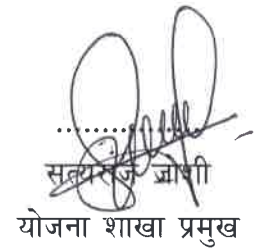 ...............
सत्यराज जोशी
योजना शाखा प्रमुख